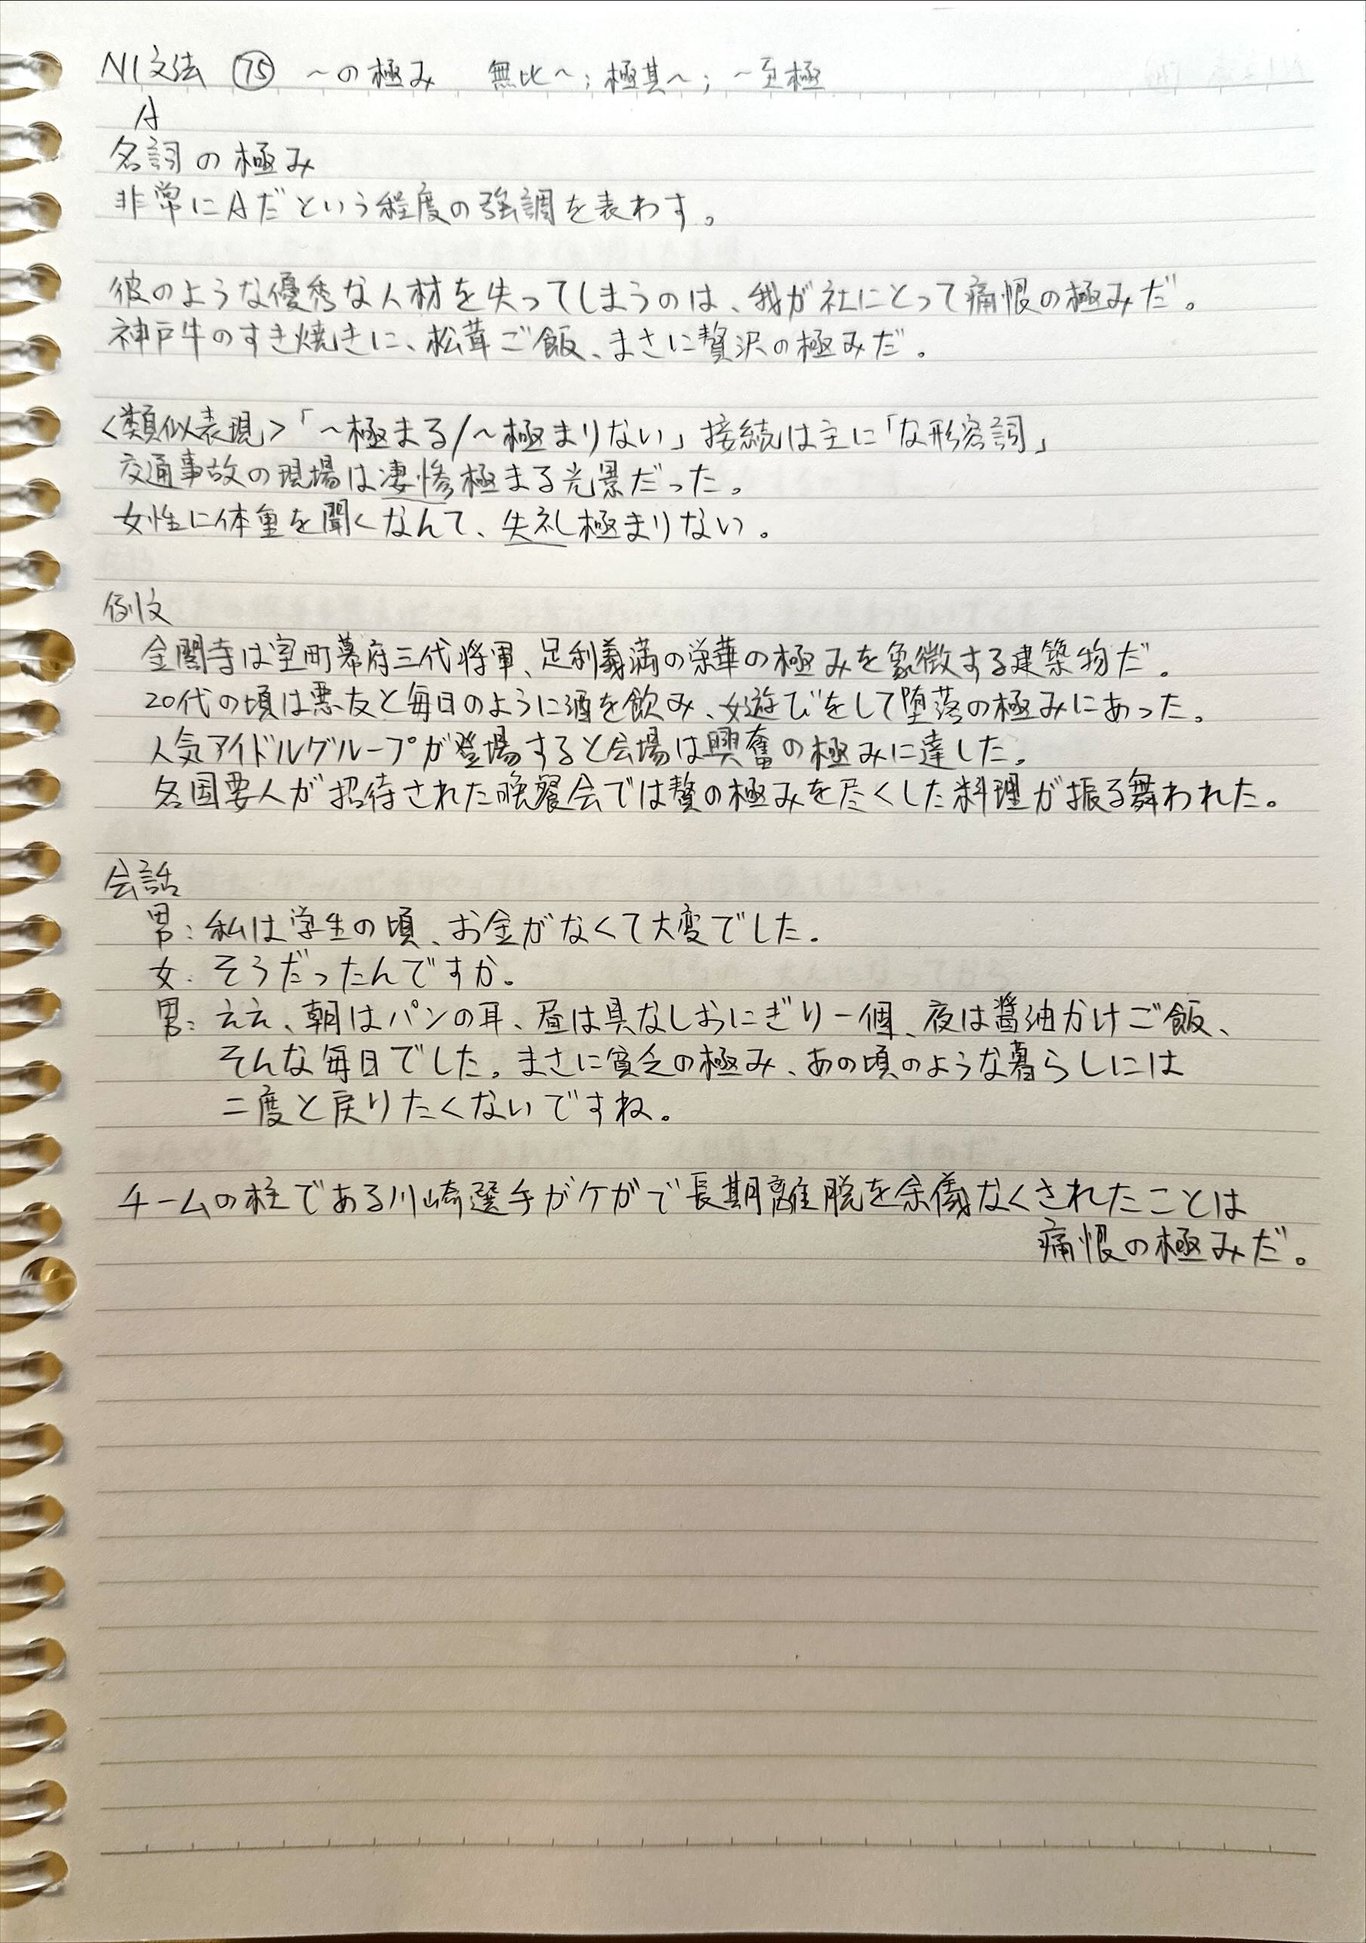 N1文法 ⑦⑤ ～の極み 無比～；極其～；～至極
A
名詞の極み
非常にAだという程度の強調を表わす。
彼のような優秀な人材を失ってしまうのは、我が社にとって痛恨の極みだ。
神戸牛のすき焼きに、松茸ご飯、まさに贅沢の極みだ。
<類似表現>「～極まる/～極まりない」接続は主に「な形容詞」
交通事故の現場は凄惨極まる光景だった。
女性に体重を聞くなんて、失礼極まりない。
例文
金閣寺は室町幕府三代将軍、足利義満の栄華の極みを象徴する建築物だ。
20代の頃は悪友と毎日のように酒を飲み、女遊びをして堕落の極みにあった。
人気アイドルグループが登場すると会場は興奮の極みに達した。
各国要人が招待された晩餐会では贅の極みを尽くした料理が振る舞われた。
会話
男：私は学生の頃、お金がなくて大変でした。
女：そうだったんですか。
男：ええ、朝はパンの耳、昼は具なしおにぎり一個、夜は醤油かけご飯、
そんな毎日でした。まさに貧乏の極み、あの頃のような暮らしには
二度と戻りたくないですね。
チームの柱である川崎選手がケガで長期離脱を余儀なくされたことは
痛恨の極みだ。